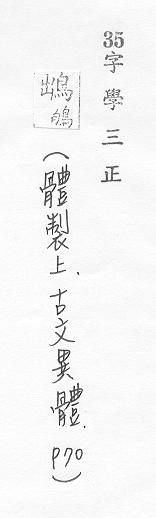 35字學三正
(體製上.古文異體.P70)